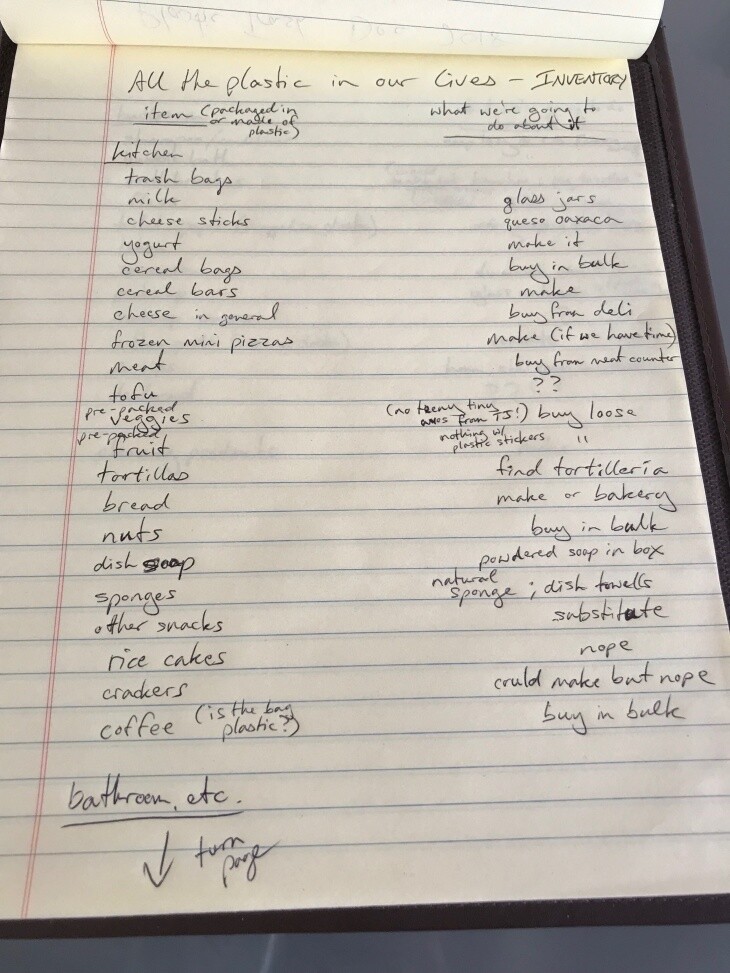 All the plastic in our lives - INVENTORY
item (packaged in or made of plastic) what we're going to do about it
kitchen
trash bags
milk glass jars
cheese sticks queso oaxaca
yogurt make it
cereal bags buy in bulk
cereal bars make
cheese in general buy from deli
frozen mini pizzas make (if we have time)
meat buy from meat counter
tofu ??
pre-packed veggies (no teeny tiny avos from TJ!) buy loose
pre-packed fruit nothing w/ plastic stickers "
tortillas find tortilleria
bread make or bakery
nuts buy in bulk
dish soap powdered soap in box
sponges natural sponge; dish towells
other snacks substitute
rice cakes nope
crackers could make but nope
coffee (is the bag plastic?) buy in bulk
bathroom, etc.
↓ turn page